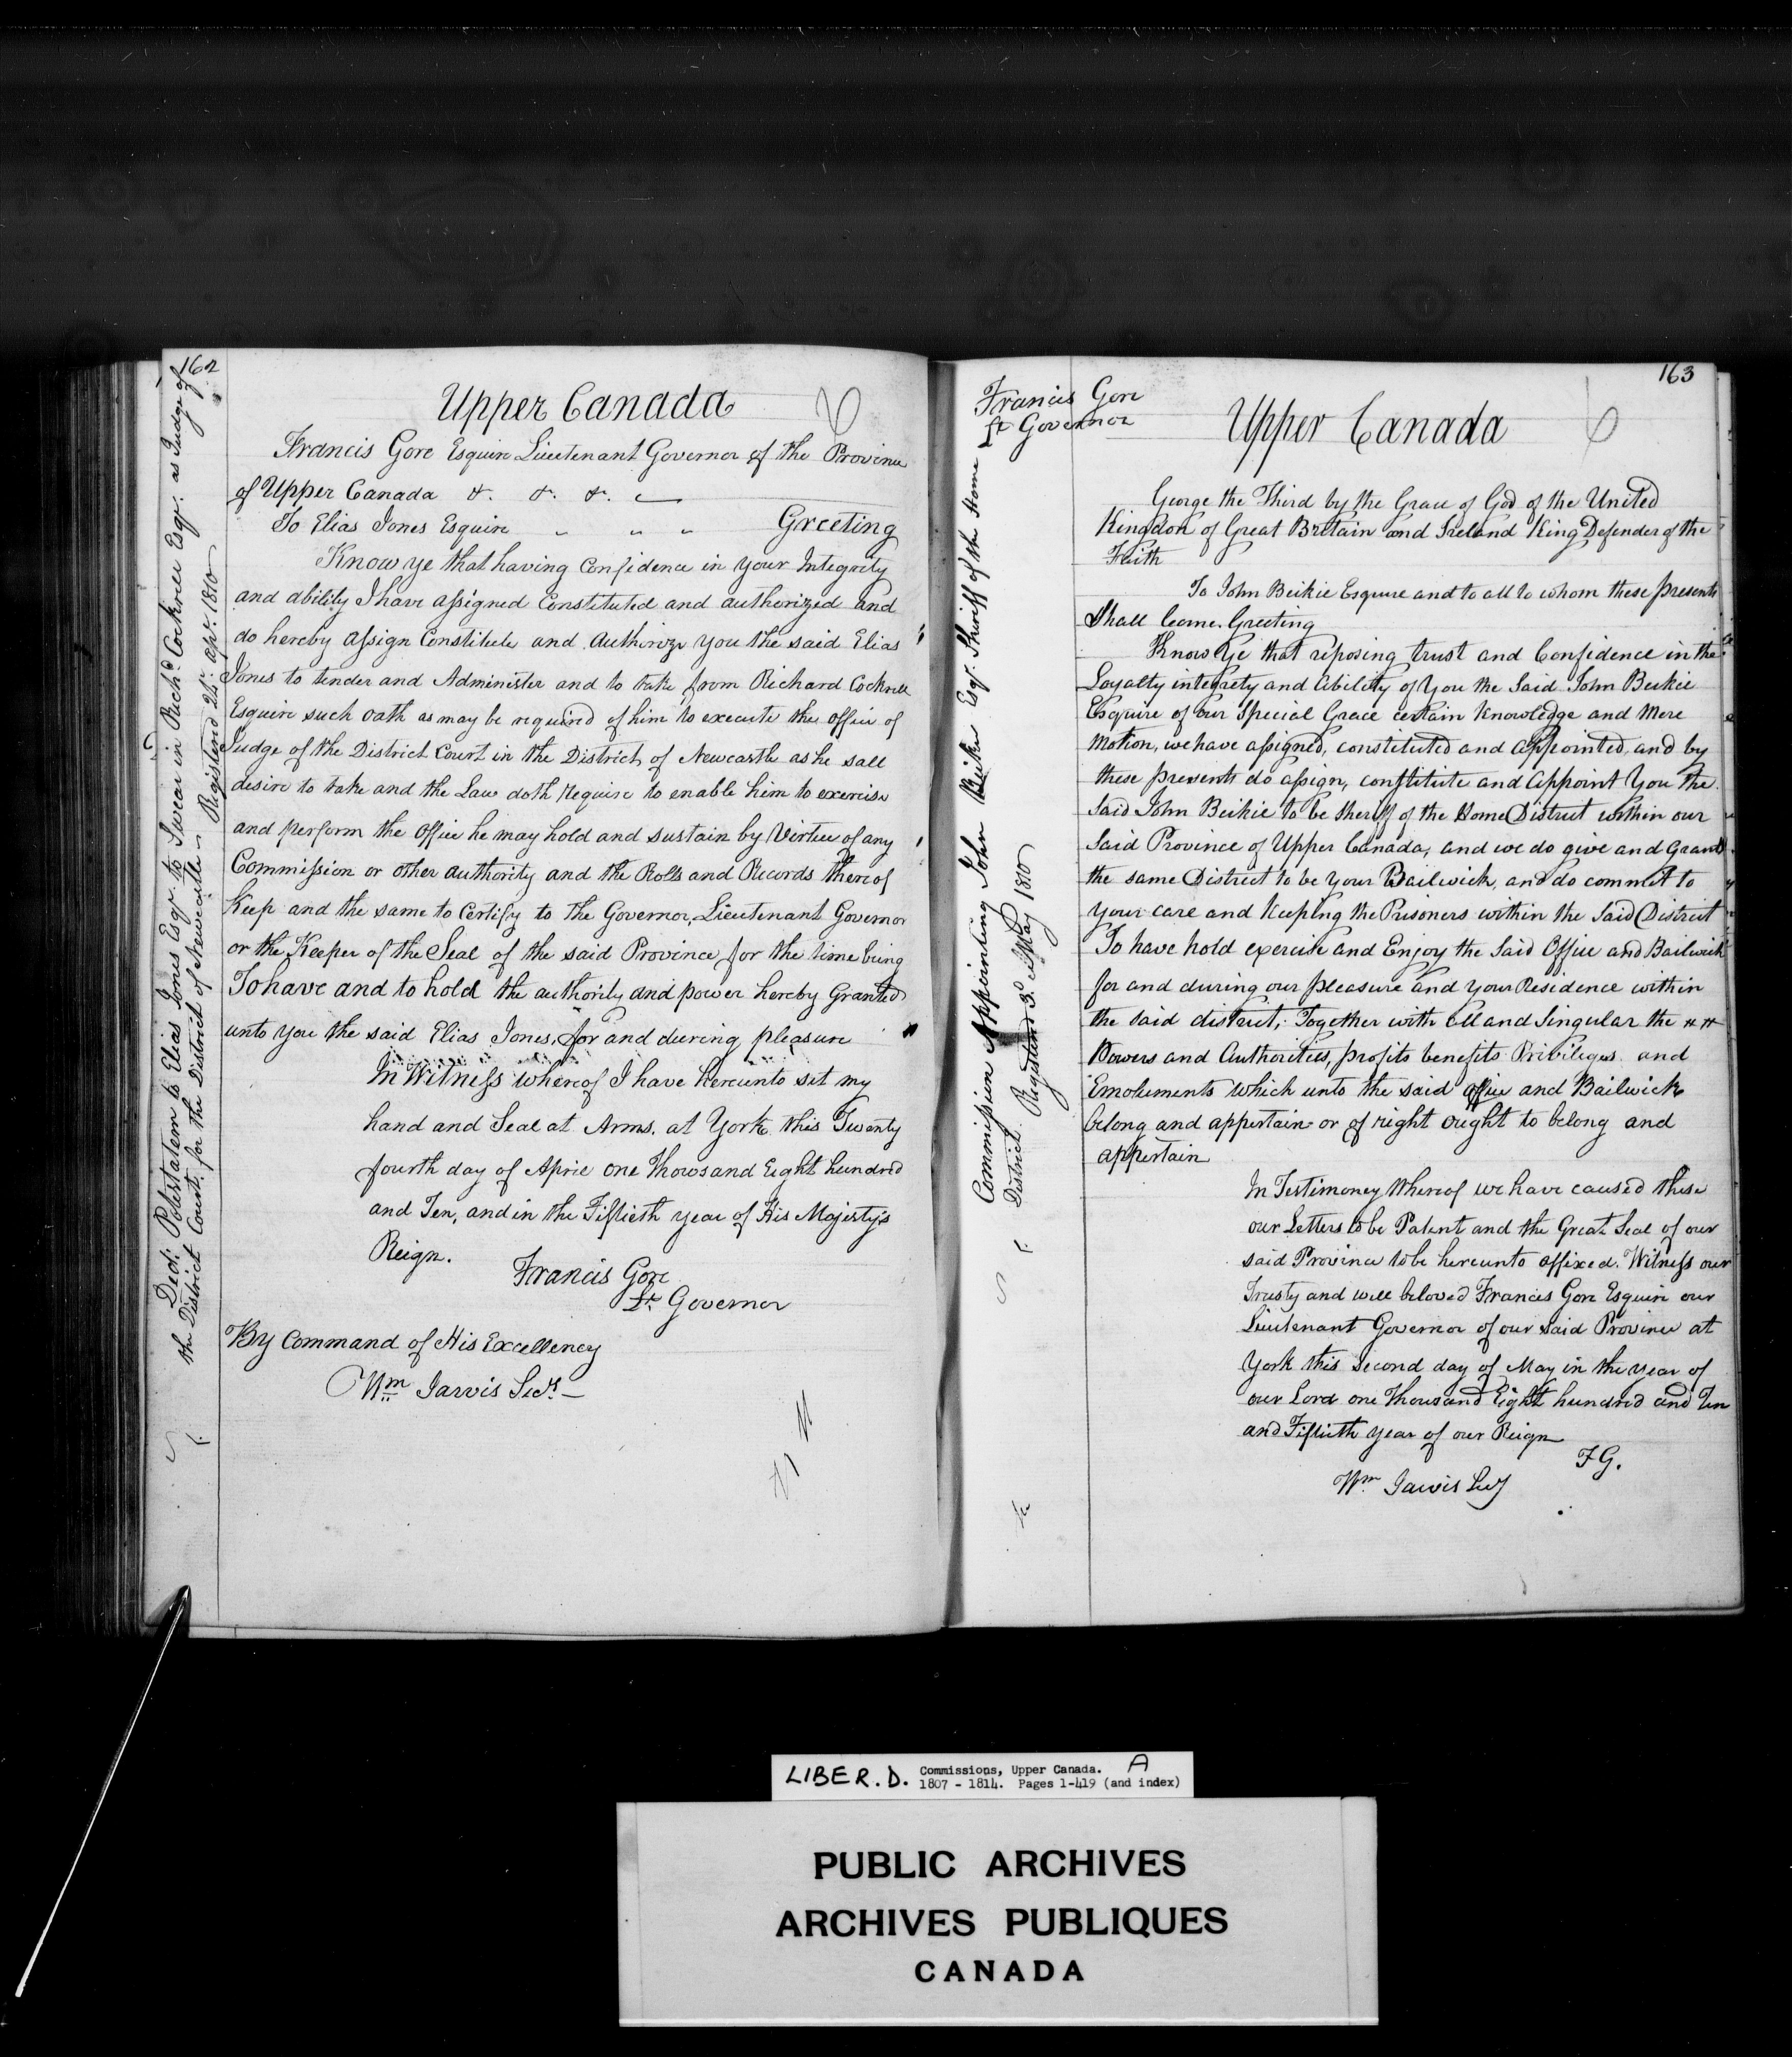 162
Dedi: Potestatem to Elias Jones Esqr. to Swear in Richd. Cockrell Esqr. as Judge of
the District Court, for the District of Newcastle — Registered 24th. Apr. 1810
Upper Canada
Francis Gore Esquire Lieutenant Governor of the Province
of Upper Canada &. &. &.
To Elias Jones Esquire " " " Greeting
Know ye that having Confidence in your Integrity
and ability I have assigned Constituted and authorized and
do hereby assign Constitute and Authorize you the said Elias
Jones to tender and Administer and to take from Richard Cockrell
Esquire such oath as may be required of him to execute the office of
Judge of the District Court in the District of Newcastle as he sall
desire to take and the Law doth require to enable him to exercise
and perform the Office he may hold and sustain by Virtue of any
Commission or other authority and the Rolls and Records thereof
Keep and the same to Certify to the Governor, Lieutenant Governor
or the Keeper of the Seal of the said Province for the time being
To have and to hold the authority and power hereby Granted
unto you the said Elias Jones, for and during pleasure
In Witness whereof I have hereunto set my
hand and Seal at Arms. at York this Twenty
fourth day of April one Thousand Eight hundred
and Ten, and in the Fiftieth year of His Majesty's
Reign.
Francis Gore
Lt. Governor
By Command of His Excellency
Wm Jarvis Secy. —
163
Francis Gore
Lt Governor
Commission Appointing John Beikie Esqr. Sheriff of the Home
District. Registered 3d. May 1810
Upper Canada
George the Third by the Grace of God of the United
Kingdon of Great Britain and Ireland King Defender of the
Faith
To John Beikie Esquire and to all to whom these presents
Shall Come. Greeting
Know Ye that reposing trust and Confidence in the
Loyalty integrety and Ability of You the Said John Beikie
Esquire of our Special Grace certain Knowledge and Mere
Motion, we have assigned, constituted and appointed, and by
these presents do assign, constitute and appoint You the
Said John Beikie to be Sheriff of the Home District within our
Said Province of Upper Canada, and we do give and Grant
the same District to be Your Bailwick, and do commit to
your care and Keeping the Prisoners within the Said District
To have hold exercise and Enjoy the Said Office and Bailwick
for and during our pleasure and Your Residence within
the said district, Together with All and Singular the
Powers and Authorities, profits benefits Privileges and
Emoluments which unto the said office and Bailwick
belong and appertain or of right ought to belong and
appertain
In Testimoney Whereof we have caused these
our Letters to be Patent and the Great Seal of our
said Province to be hereunto affixed. Witness our
Trusty and well beloved Francis Gore Esquire our
Lieutenant Governor of our said Province at
York this second day of May in the year of
our Lord one Thousand Eight hundred and Ten
and Fiftieth year of our Reign
F G.
Wm Jarvis Secy
LIBER. D. Commissions, Upper Canada. A
1807 - 1814. Pages 1-419 (and index)
PUBLIC ARCHIVES
ARCHIVES PUBLIQUES
CANADA